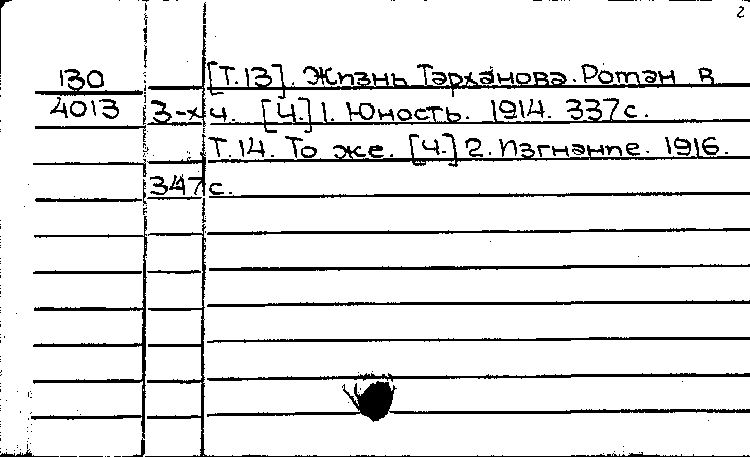 2
130 [Т.13]. Жизнь Тарханова. Роман в
4013 3-х ч. [Ч.] 1. Юность. 1914. 337с.
Т.14. То же. [Ч.] 2. Изгнание. 1916.
347 с.